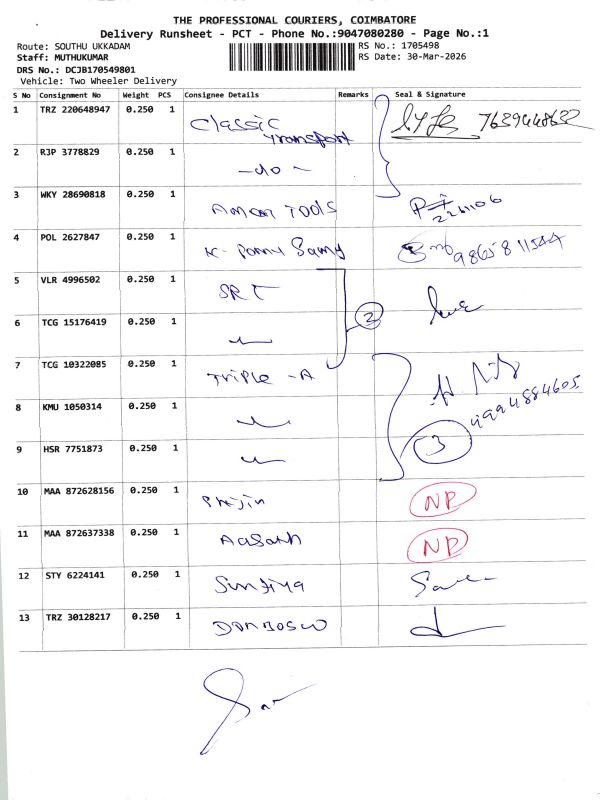 THE PROFESSIONAL COURIERS, COIMBATORE
Delivery Runsheet - PCT - Phone No.:9047080280 - Page No.:1
Route: SOUTHU UKKADAM RS No.: 1705498
Staff: MUTHUKUMAR RS Date: 30-Mar-2026
DRS No.: DCJB170549801
Vehicle: Two Wheeler Delivery
S No Consignment No Weight PCS Consignee Details Remarks Seal & Signature
1 TRZ 220648947 0.250 1 Classic Transport
2 RJP 3778829 0.250 1 -do-
3 WKY 28690818 0.250 1 Aman Tools
4 POL 2627847 0.250 1 K. Ponnu Samy
5 VLR 4996502 0.250 1 SRT
6 TCG 15176419 0.250 1 2
7 TCG 10322085 0.250 1 Triple -A
8 KMU 1050314 0.250 1 4994884605
9 HSR 7751873 0.250 1 3
10 MAA 872628156 0.250 1 NP
11 MAA 872637338 0.250 1 NP
12 STY 6224141 0.250 1
13 TRZ 30128217 0.250 1 Donbosco